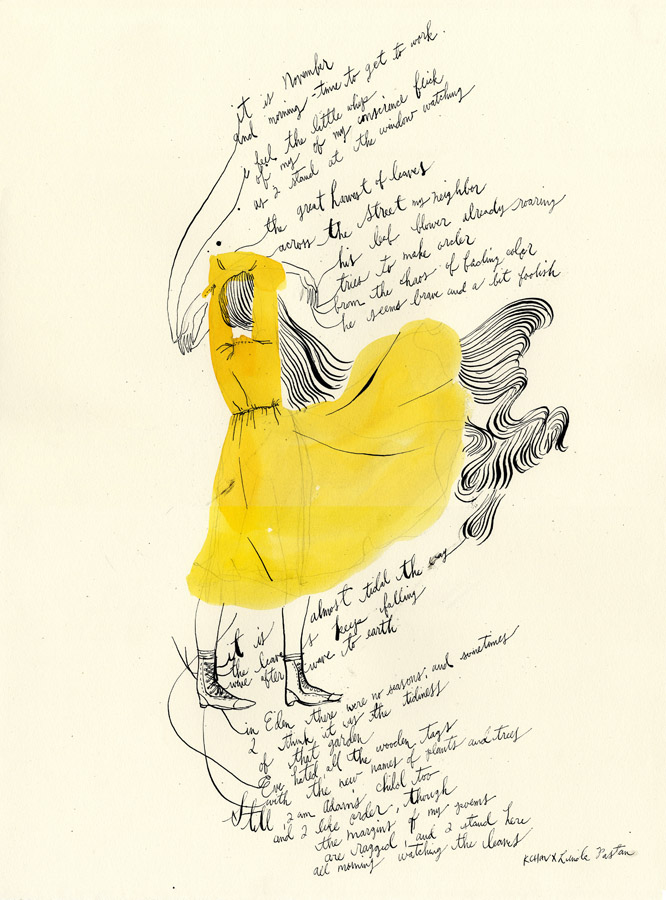 it is November
and morning - time to get to work.
i feel the little whip
of my of my conscience flick
as I stand at the window watching
the great harvest of leaves
across the street my neighbor
his leaf blower already roaring
tries to make order
from the chaos of fading color
he seems brave and a bit foolish
it is almost tidal the way
the leaves keep falling
wave after wave to earth
in Eden there were no seasons, and sometimes
I think it was the tidiness
of that garden
Eve hated, all the wooden tags
with the new names of plants and trees
Still, I am Adam's child too
and I like order, though
the margins of my poems
are ragged, and I stand here
all morning watching the leaves
KCHAN X Linda Pastan